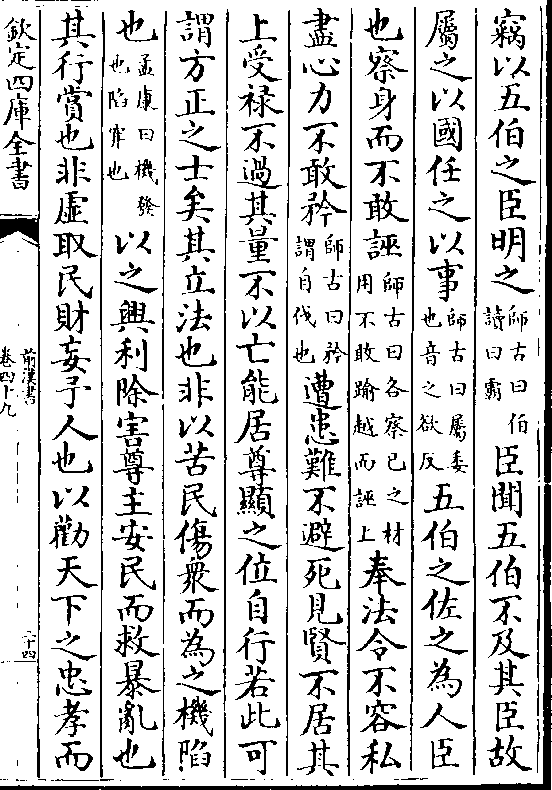 竊以五伯之臣明之師古曰伯讀曰霸臣聞五伯不及其臣故
屬之以國任之以事師古曰屬委也音之欲反五伯之佐之為人臣
也察身而不敢誣師古曰各察己之材用不敢踰越而誣上奉法令不容私
盡心力不敢矜師古曰矜謂自伐也遭患難不避死見賢不居其
上受祿不過其量不以亡能居尊顯之位自行若此可
謂方正之士矣其立法也非以苦民傷衆而為之機陷
也孟康曰機發也陷穽也以之興利除害尊主安民而救暴亂也
其行賞也非虛取民財妄予人也以勸天下之忠孝而
欽定四庫全書
前漢書
卷四十九
二十四